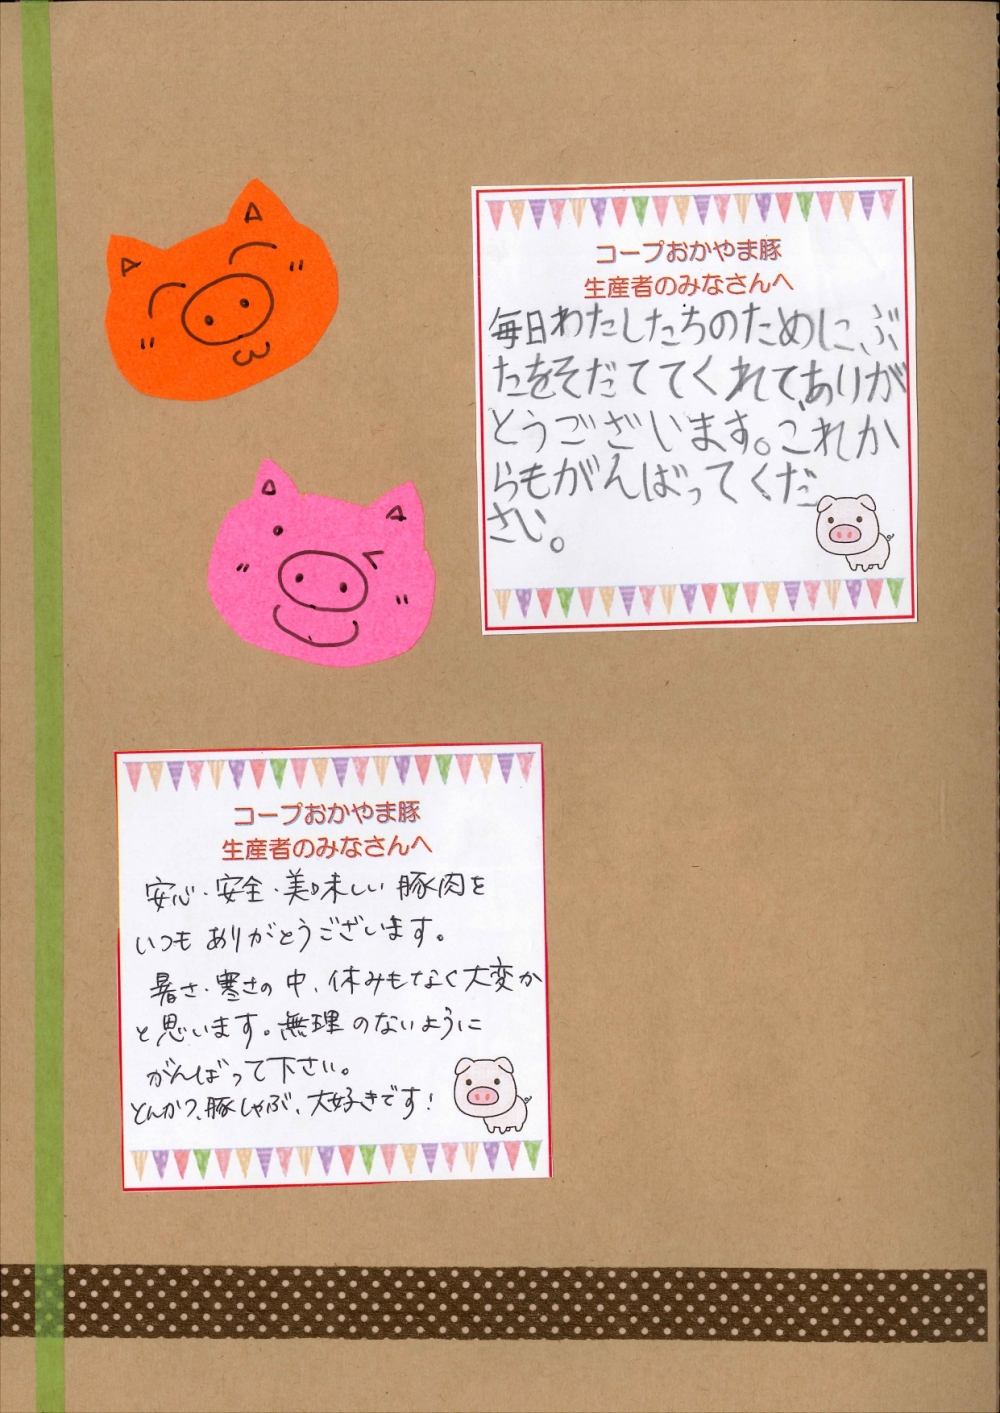 コープおかやま豚
生産者のみなさんへ
毎日わたしたちのためにぶ
たをそだててくれて、ありが
とうございます。これか
らもがんばってくだ
さい。
コープおかやま豚
生産者のみなさんへ
安心・安全・美味しい豚肉を
いつもありがとうございます。
暑さ・寒さの中、休みもなく大変か
と思います。無理のないように
がんばって下さい。
とんかつ、豚しゃぶ、大好きです！